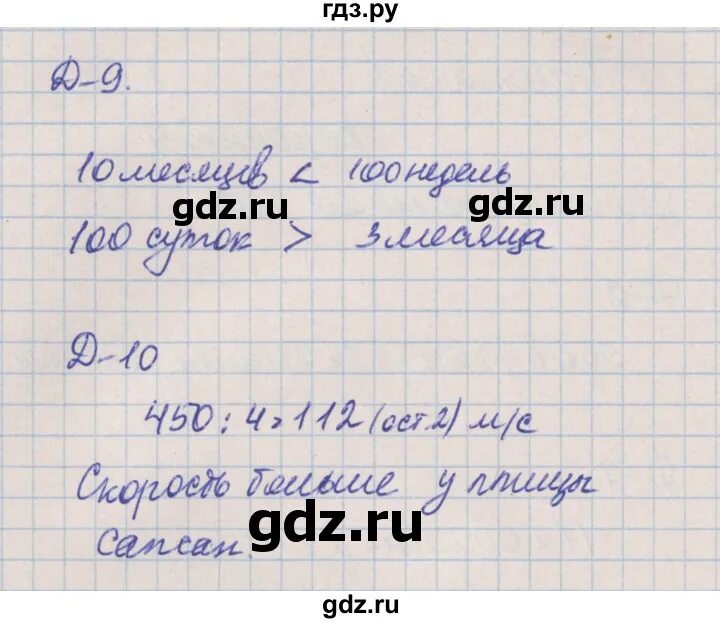 гдз.ру
Д-9.
10 месяцев < 100 недель
gdz.ru
gdz.ru
100 суток > 3 месяца
Д-10
450 : 4 = 112 (ост. 2) м/с
Скорость больше у птицы
gdz.ru
Сапсан.
gdz.ru